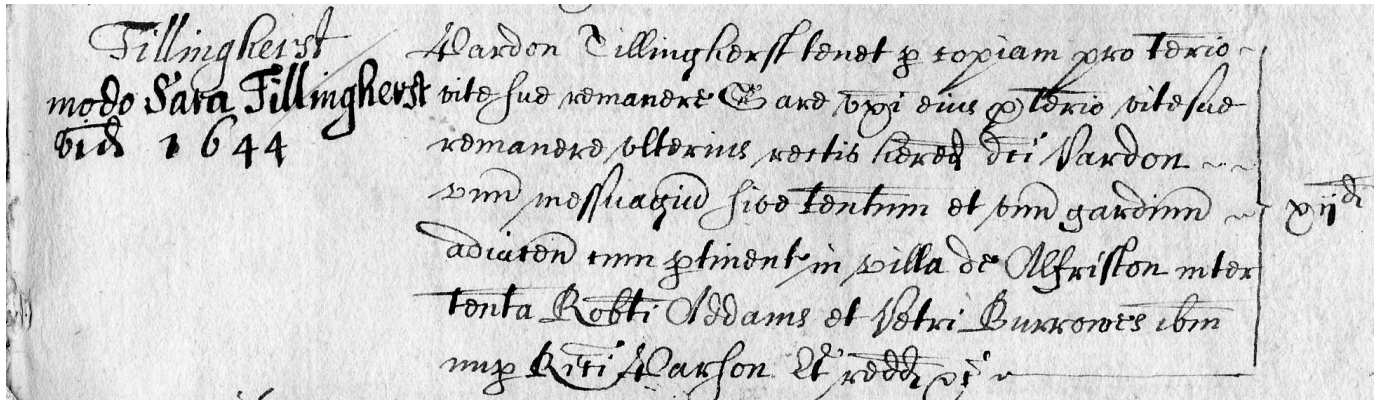 Tillingherst
modo Sara Tillingherst
vid 1644
Vardon Tillingherst tenet p copiam pro terio
vite sue remanere Sare uxi eius p terio vite sue
remanere ulterius rectis hered dci Vardon
unu messuagiu sive tentum et unu gardinu
adiacen cum ptinent in villa de Alfriston inter
tenta Robti Addams et Petri Burrowes ibm
nup Rici Warson Et redd
xijd